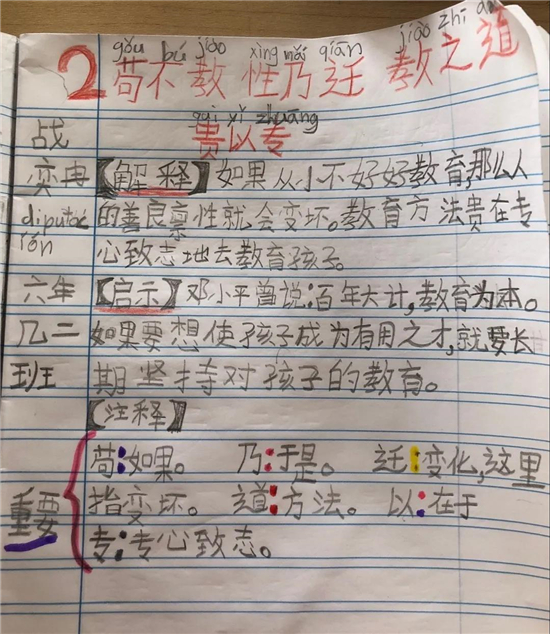 gǒu bú jiào xìng nǎi qiān jiào zhī
2 苟不教 性乃迁 教之道
guì yǐ zhuāng
贵以专
战
【解释】如果从小不好好教育,那么人
的善良禀性就会变坏。教育方法贵在专
心致志地去教育孩子。
六年 【启示】邓小平曾说:百年大计,教育为本。
二 如果要想使孩子成为有用之才,就要长
班 期坚持对孩子的教育。
【注释】
苟:如果。 乃:于是。 迁:变化,这里
重要 指变坏。 道:方法。 以:在于
专:专心致志。